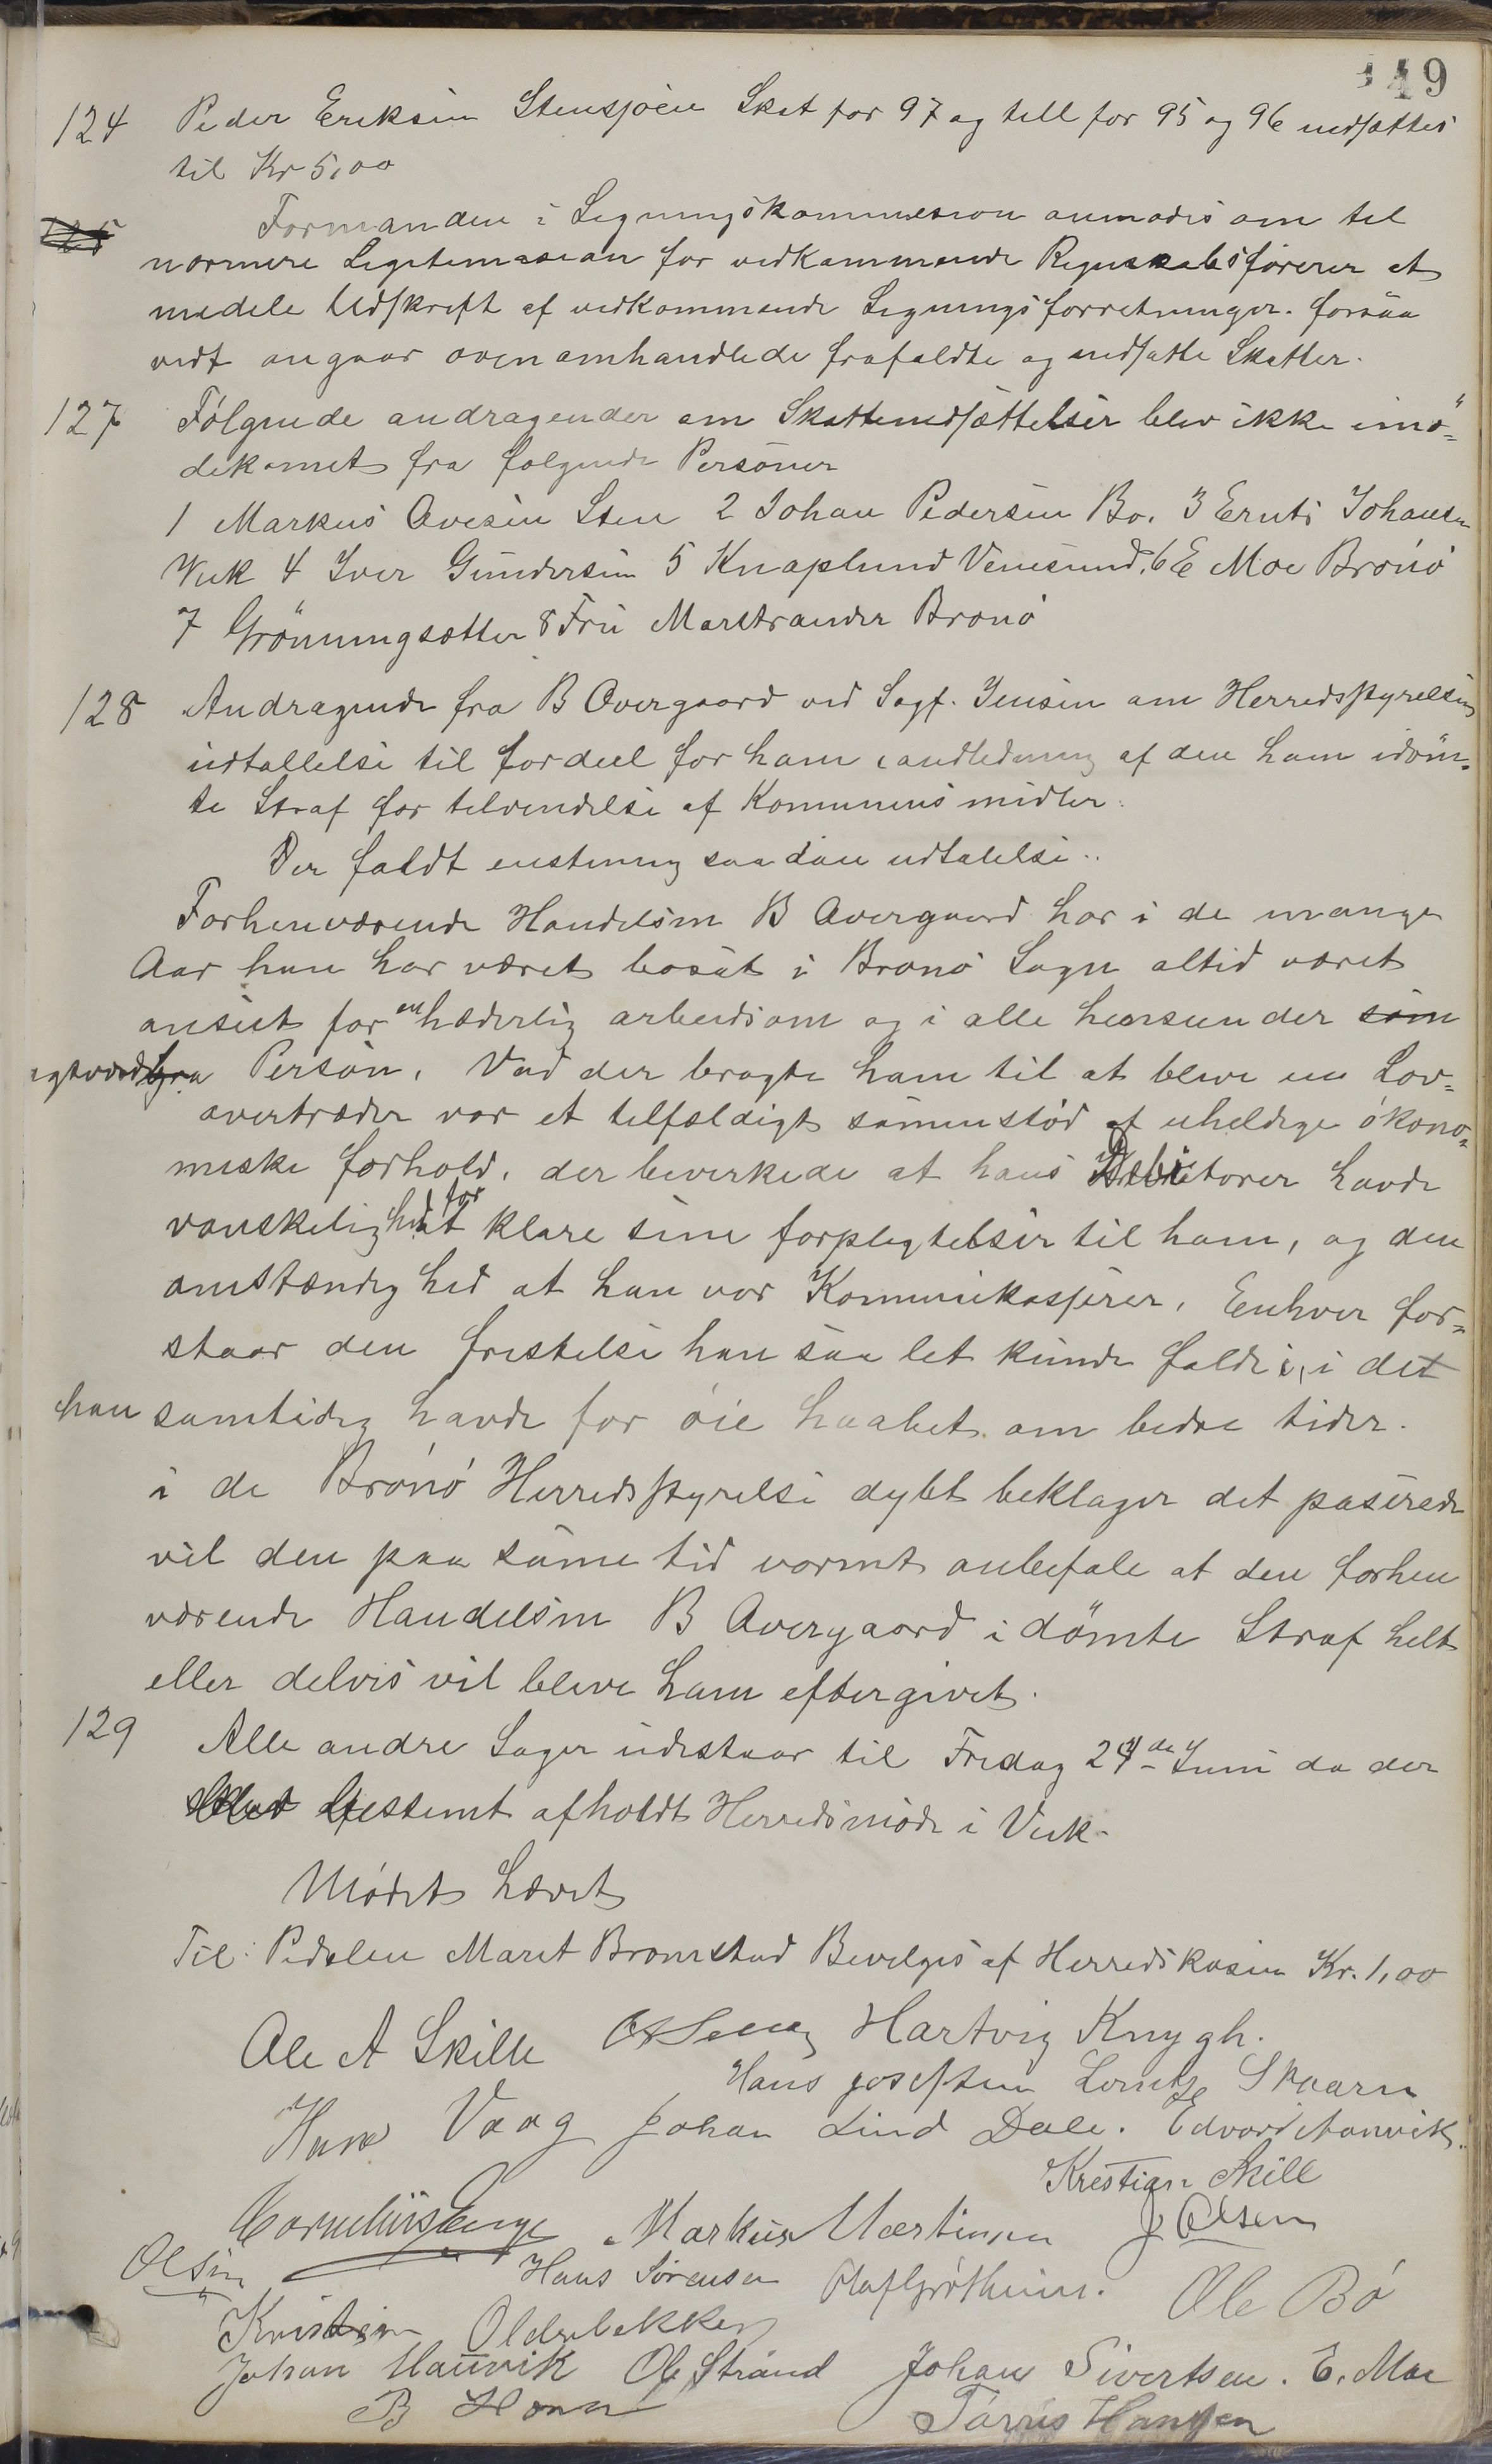 149
124 Peder Eriksen Stensjøen Skat for 97 og till for 95 og 96 nedsættes
til Kr 5,00
Formanden i Ligningskommission anmodes om til
nærmere Legitimasion for vedkommende Regnskabsfører at
medele Udskrift af vedkommende Ligningsforretninger. forsaa
vidt angaar ovenomhandlede frafaldte og nedsatte Skatter.
127 Følgende andragender om Skattenedsættelser blev ikke imø-
dekomet fra følgende Personer
1 Markus Ovesen Sten 2 Johan Pedersen Bo. 3 Ernts Johansen
Viik 4 Iver Gundersen 5 Knaplund Vennesund, 6 E Moe Brønø
7 Grønningsætter 8 Fru Marstrander Brønø
128 Andragende fra B Overgaard ved Sagf. Jensen om Herredsstyrelsens
udtallelse til fordeel for ham i andledning af den ham idøm-
te Straf for tilvendelse af Kommunens midler.
Der faldt enstemig saadan udtalelse..
Forhenværende Handelsm B Overgaard har i de mange
Aar han har været bosat i Brønø Sogn altid været
anseet for en hæderlig arbeidsom og i alle hensender som
agtværdig Person. Vad der bragte ham til at blive en Lov-
overtræder var et tilfældigt sammenstød af uheldige økono-
miske forhold. der bevirkede at hans Debitorer havde
vanskelighed for at klare sine forpligtelser til ham, og den
omstændighed at han var Kommunekasserer. Enhver for-
staar den fristelse han saa let kunde falde i, i det
han samtidig havde for øie haabet om bedre tider.
i de Brønø Herredsstyrelse dybt beklager det paserede
vil den paa same tid varmt anbefale at den forhen
værende Handelsm B Overgaard i dømte Straf helt
eller delvis vil blive ham eftergivet.
129 Alle andre Sager udestaar til Fredag 24de Juni da der
bestemt afholdt Herredsmøde i Viik.
Mødet hævet
Til Pedelen Marit Brømstad Bevilges af Herredskasen Kr. 1,00
Ole A Skille Hartvig Knygh.
Hans Josefsen Lorntz Skaarn
Hans Vaag Johan Lind Dale. Edvard Monvik.
Kristian Skille
Cornelius Lange Markus Martinsen J Olsen
Olsen Hans Sørensen Olaf Grøtheim. Ole Bø
Kristian Olderbekken
Johan Mauvik Ole Strand Johan Sivertsen. E. Moe
B Horn Tørris Hansen